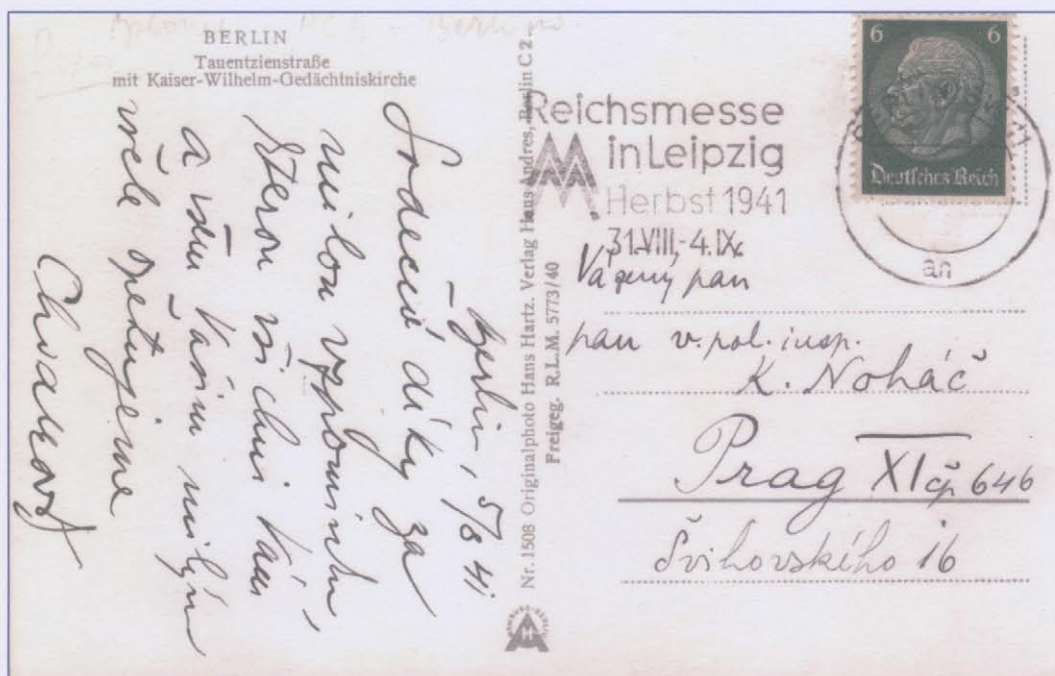 BERLIN
Tauentzienstraße
mit Kaiser-Wilhelm-Gedächtniskirche
Berlin, 5/8 41
Srdečné díky za
milou vzpomínku,
kterou všichni Vám
a všem Vašim milým
vřele opětujeme
Nr. 1508 Originalphoto Hans Hartz. Verlag Hans Andres, Berlin C 2
Freigeg. R.L.M. 5773/40
HAMBURG-BERLIN
Reichsmesse
in Leipzig
Herbst 1941
31.VIII.-4.IX.
6 6
Deutsches Reich
an
Vážený pan
pan v. pol. insp.
K. Noháč
Prag XI čp 646
Švihovského 16